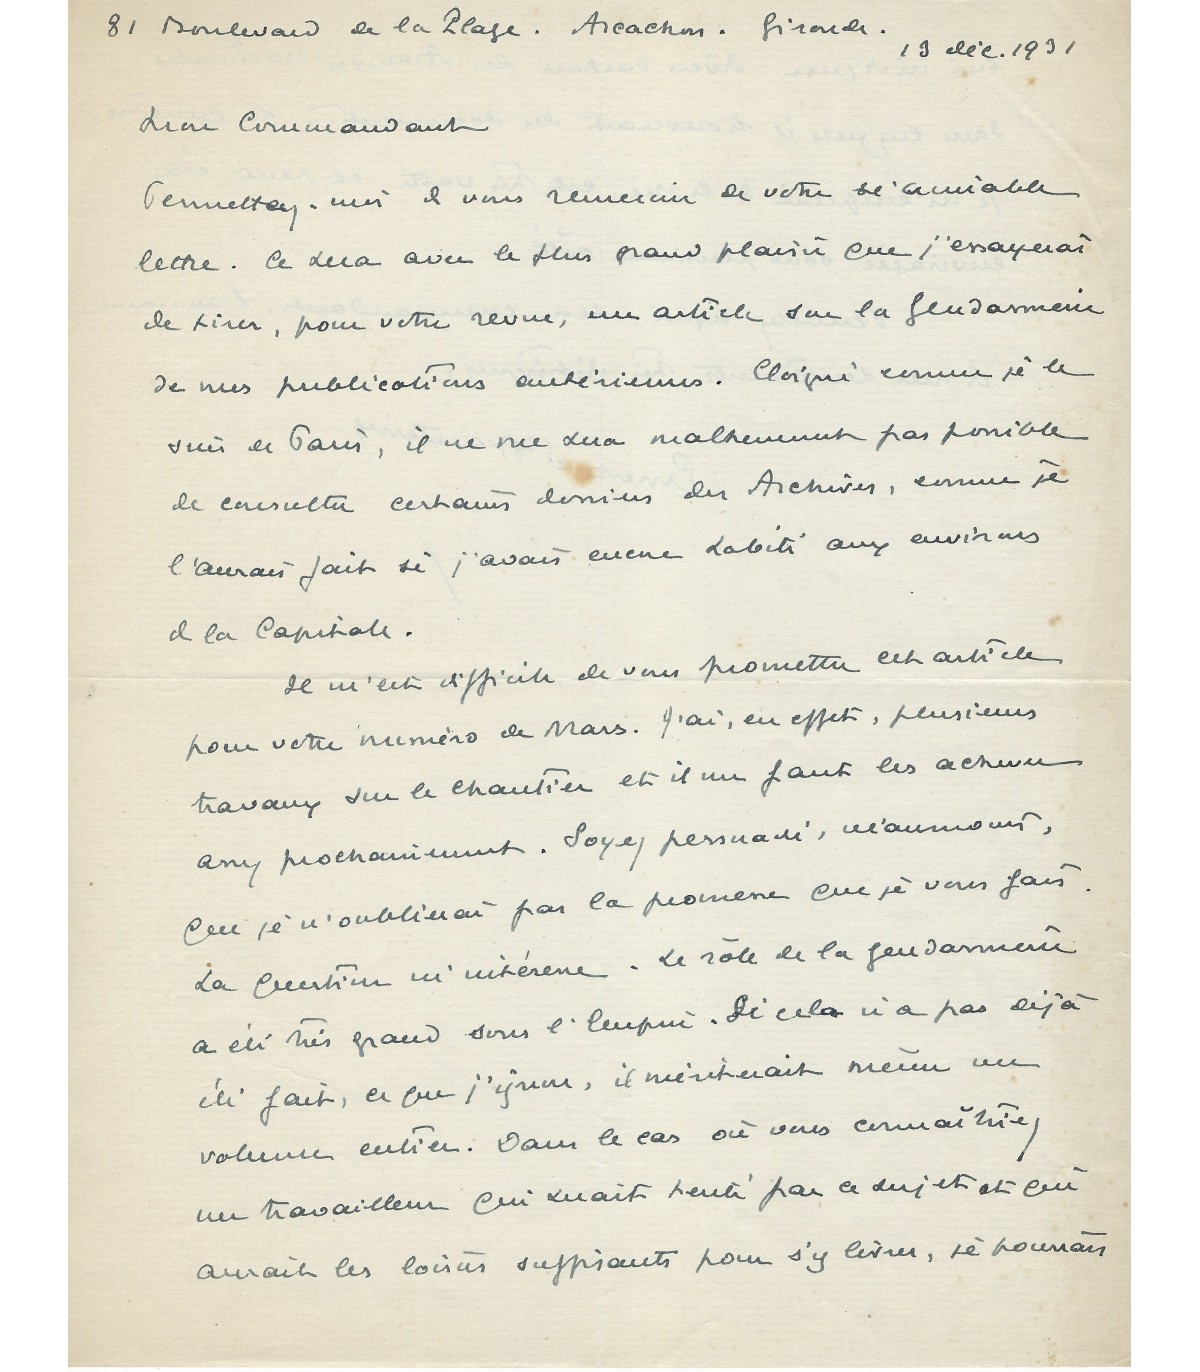 81 Boulevard de la Plage. Arcachon. Gironde.
13 déc. 1931
Mon Commandant
Permettez-moi de vous remercier de votre si aimable
lettre. Ce sera avec le plus grand plaisir que j'essayerai
de tirer, pour votre revue, un article sur la Gendarmerie
de mes publications antérieures. Eloigné comme je le
suis de Paris, il ne me sera malheureusement pas possible
de consulter certains dossiers des Archives, comme je
l'aurais fait si j'avais encore habité aux environs
de la Capitale.
Il m'est difficile de vous promettre cet article
pour votre numéro de Mars. J'ai, en effet, plusieurs
travaux sur le chantier et il me faut les achever
assez prochainement. Soyez persuadé, néanmoins,
que je n'oublierai pas la promesse que je vous fais.
La question m'intéresse. Le rôle de la gendarmerie
a été très grand sous l'Empire. Si cela n'a pas déjà
été fait, ce que j'ignore, il mériterait même un
volume entier. Dans le cas où vous connaîtriez
un travailleur qui serait tenté par ce sujet et qui
aurait les loisirs suffisants pour s'y livrer, je pourrais